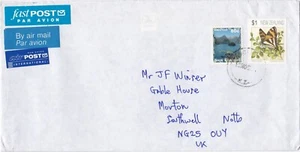 fast POST
PAR AVION
By air mail
Par avion
fast POST
INTERNATIONAL
$1 NEW ZEALAND
Mr JF Winser
Gable House
Morton
Southwell Notts
NG25 OUY
UK